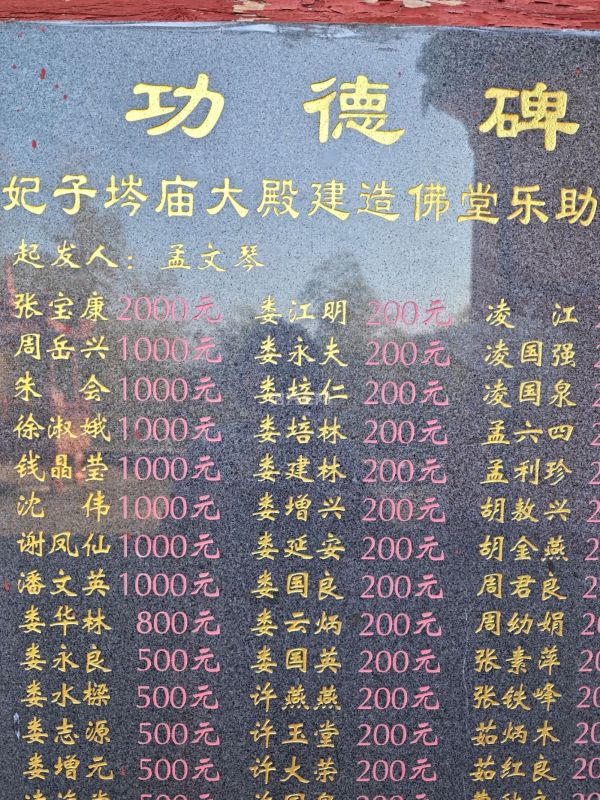 功德碑
妃子埁庙大殿建造佛堂乐助
起发人：孟文琴
张宝康 2000元 娄江明 200元 凌江
周岳兴 1000元 娄永夫 200元 凌国强
朱会 1000元 娄培仁 200元 凌国泉
徐淑娥 1000元 娄培林 200元 孟六四
钱晶莹 1000元 娄建林 200元 孟利珍
沈伟 1000元 娄增兴 200元 胡敖兴
谢凤仙 1000元 娄延安 200元 胡金燕
潘文英 1000元 娄国良 200元 周君良
娄华林 800元 娄云炳 200元 周幼娟
娄永良 500元 娄国英 200元 张素萍
娄水樑 500元 许燕燕 200元 张铁峰
娄志源 500元 许玉堂 200元 茹炳木
娄增元 500元 许大荣 200元 茹红良